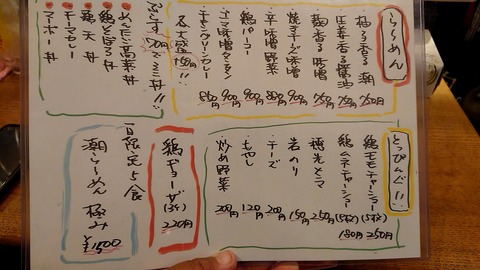 らーめん
柚子香る 潮 750円
生姜香る 醤油 750円
麹香る 味噌 750円
焼チーズ味噌 900円
辛味噌野菜 900円
鶏パーコー 900円
ゴマ味噌タンタン 900円
チキングリーンカレー 850円
各大盛 150円!!
ぷらす200円でミニ丼!!
めんたい高菜丼
鶏そぼろ丼
鶏天丼
チーマカレー
チャーホー丼
とっぴんぐ!!
鶏モモチャーシュー(5枚) 250円
鶏ムネチャーシュー(5枚) 180円
穂先メンマ 250円
岩のり 150円
チーズ 200円
もやし 120円
炒め野菜 200円
鶏ギョーザ(3ヶ) 220円
一日限定5食
潮らーめん 極み ¥1,500